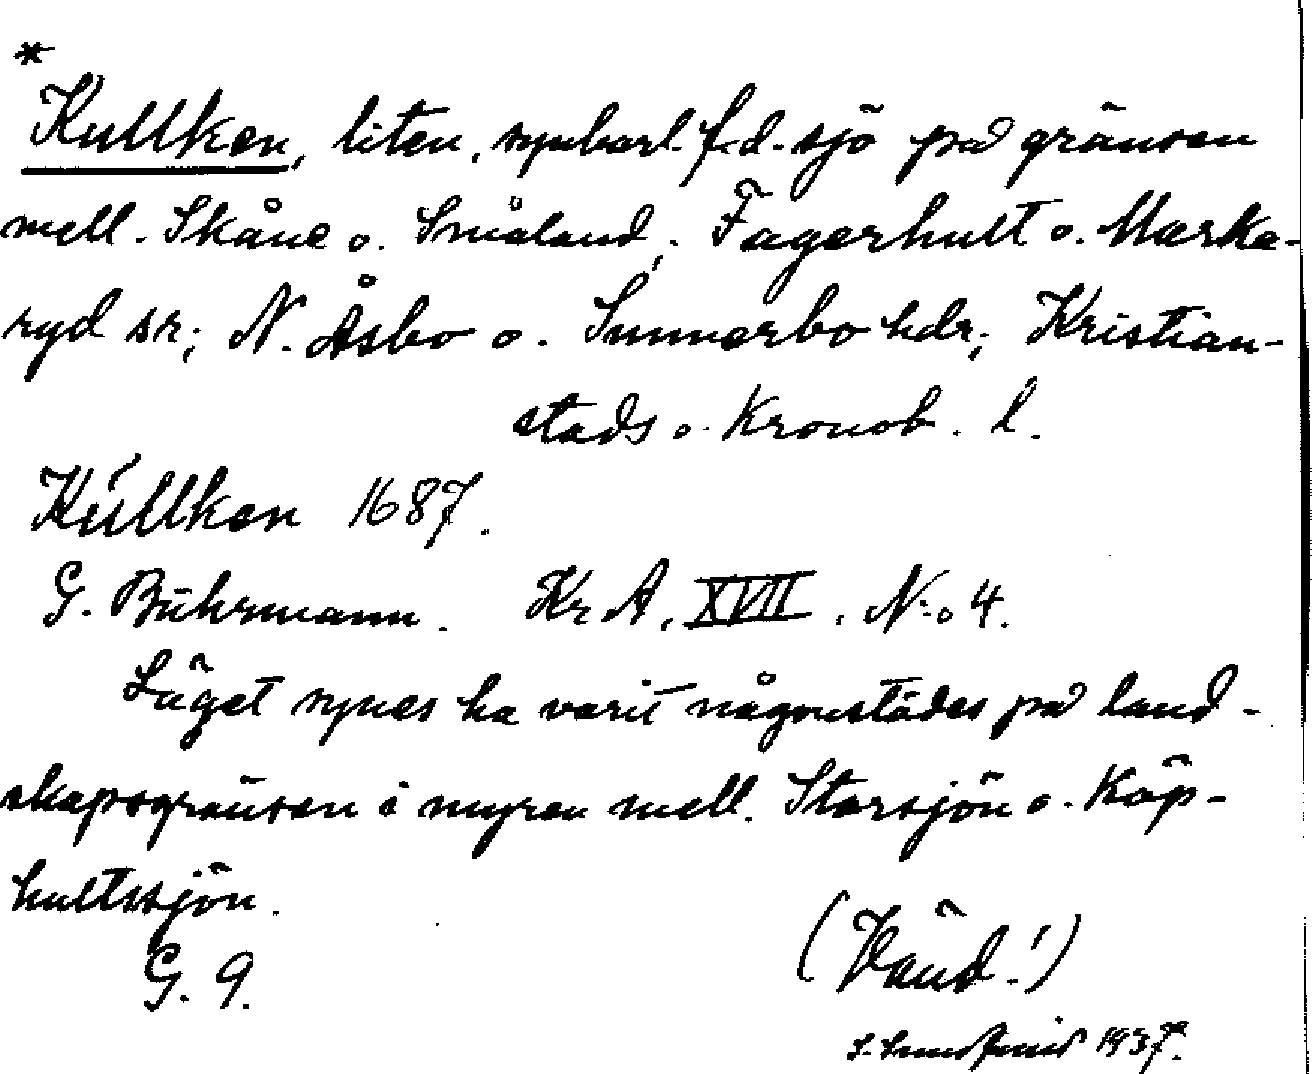 *
Kullken, liten, synbarl. f.d. sjö på gränsen
mell. Skåne o. Småland; Fagerhult o. Marka-
ryd sr; N. Åsbo o. Sunnerbo hdr; Kristian-
stads o. Kronob. l.
Kúllken 1687.
G. Buhrmann. Kr A, XVII, N:o 4.
Läget synes ha varit någonstädes på land-
skapsgränsen i myren mell. Storsjön o. Köp-
hultssjön.
G. 9.
(Vänd!)
1937.